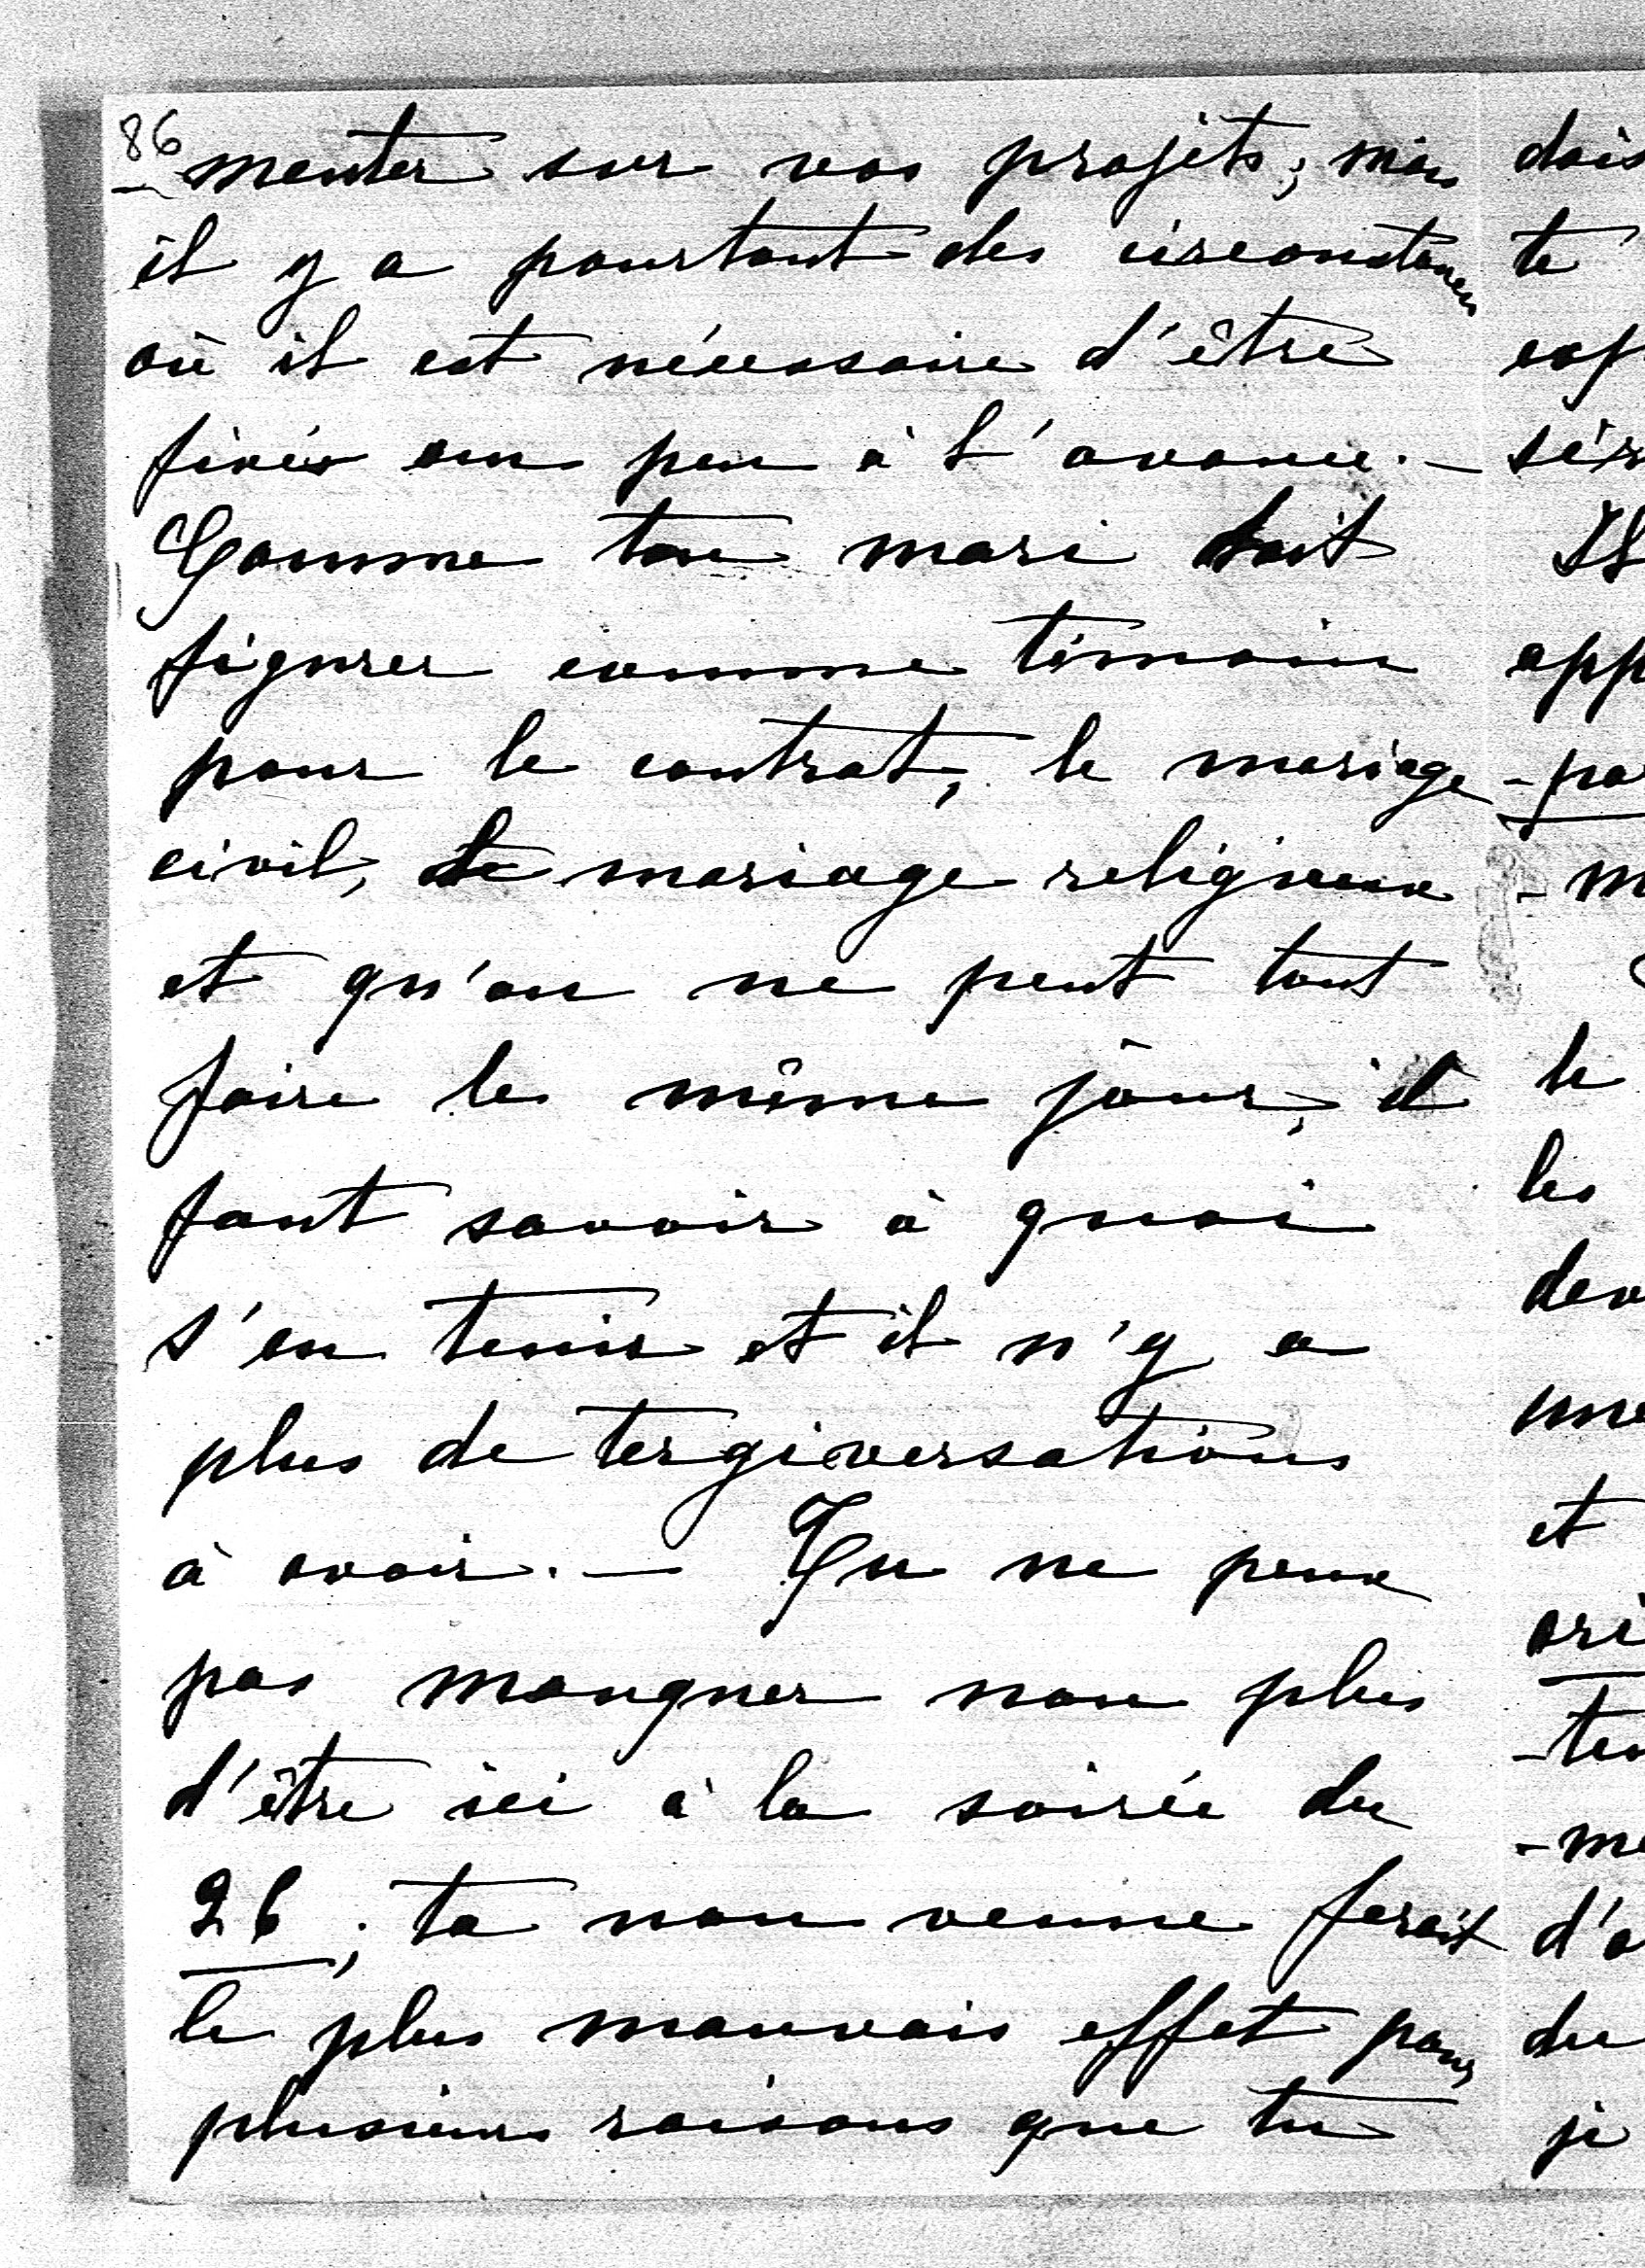 86
menter sur vos projets ; mais
il y a pourtant des circonstances
où il est nécessaire d'être
fixés un peu à l'avance. —
Comme ton mari doit
figurer comme témoin
pour le contrat, le mariage
civil, le mariage religieux
et qu'on ne peut tout
faire le même jour, il
faut savoir à quoi
s'en tenir et il n'y a
plus de tergiversations
à avoir. — Tu ne peux
pas manquer non plus
d'être ici à la soirée du
26 ; ta non venue ferait
le plus mauvais effet pour
plusieurs raisons que tu
dois
te
Il
app
-par
-m
le
les
dev
une
et
ori
-ten
-me
d'a
du
je